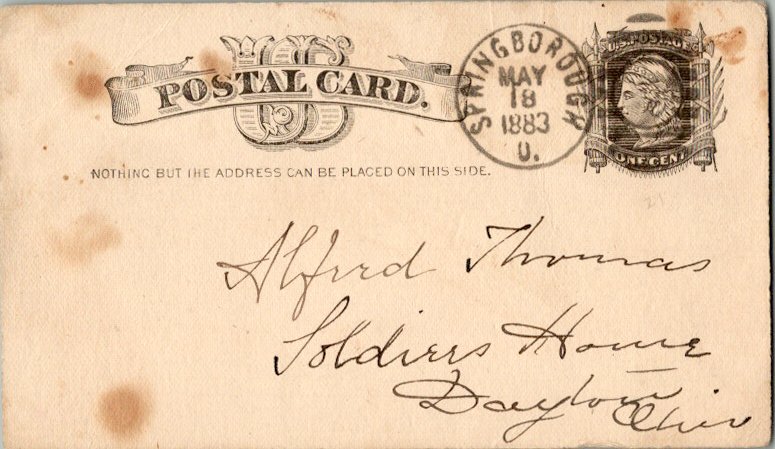 U.S. POSTAGE
POSTAL CARD.
US
SPRINGBOROUGH
MAY
18
1883
O.
ONE CENT
NOTHING BUT THE ADDRESS CAN BE PLACED ON THIS SIDE.
Alfred Thomas
Soldiers Home
Dayton Ohio
21